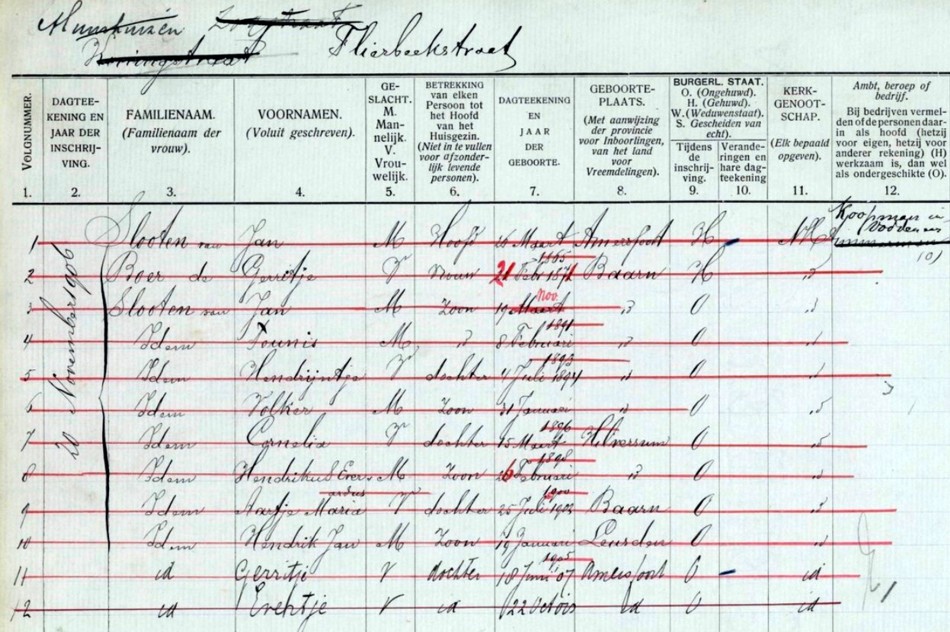 Flierbeekstraat
VOLGNUMMER.
1.
DAGTEE-
KENING EN
JAAR DER
INSCHRIJ-
VING.
2.
FAMILIENAAM.
(Familienaam der
vrouw).
3.
VOORNAMEN.
(Voluit geschreven).
4.
GE-
SLACHT.
M.
Man-
nelijk.
V.
Vrou-
welijk.
5.
BETREKKING
van elken
Persoon tot
het Hoofd
van het
Huisgezin.
(Niet in te vullen
voor afzonder-
lijk levende
personen).
6.
DAGTEEKENING
EN
JAAR
DER
GEBOORTE.
7.
GEBOORTE-
PLAATS.
(Met aanwijzing
der provincie
voor Inboorlingen,
van het land
voor
Vreemdelingen).
8.
BURGERL. STAAT.
O. (Ongehuwd).
H. (Gehuwd).
W. (Weduwenstaat).
S. Gescheiden van
echt).
Tijdens
de
inschrij-
ving.
9.
Verande-
ringen en
hare dag-
teekening
10.
KERK-
GENOOT-
SCHAP.
(Elk bepaald
opgeven).
11.
Ambt, beroep of
bedrijf.
Bij bedrijven vermel-
den of de personen daar-
in als hoofd (hetzij
voor eigen, hetzij voor
anderer rekening) (H)
werkzaam is, dan wel
als ondergeschikte (O).
12.
20 November 1906
Koopman in
Vodden
(O)
1 Slooten van Jan M Hoofd 26 Maart Amersfoort H NH
2 Boer de Gerritje V Vrouw 21 Feb 1871 Baarn H "
3 Slooten van Jan M Zoon 19 Maart Nov. 1891 " O "
4 Idem Teunis M " 8 Februari 1893 " O "
5 Idem Hendrijntje V dochter 4 Juli 1894 " O "
6 Idem Volker M Zoon 31 Januari 1896 " O "
7 Idem Cornelia V dochter 15 Maart 1898 Hilversum O "
8 Idem Hendrikus Evers M Zoon 26 Februari 1900 " O "
ardus
9 Idem Aartje Maria V dochter 25 Juli 1902 Baarn O "
10 Idem Hendrik Jan M Zoon 19 Januari 1905 Leusden O "
11 id Gerritje V dochter 18 Juni 07 Amersfoort O id
12 id Evertje V id 22 id O id